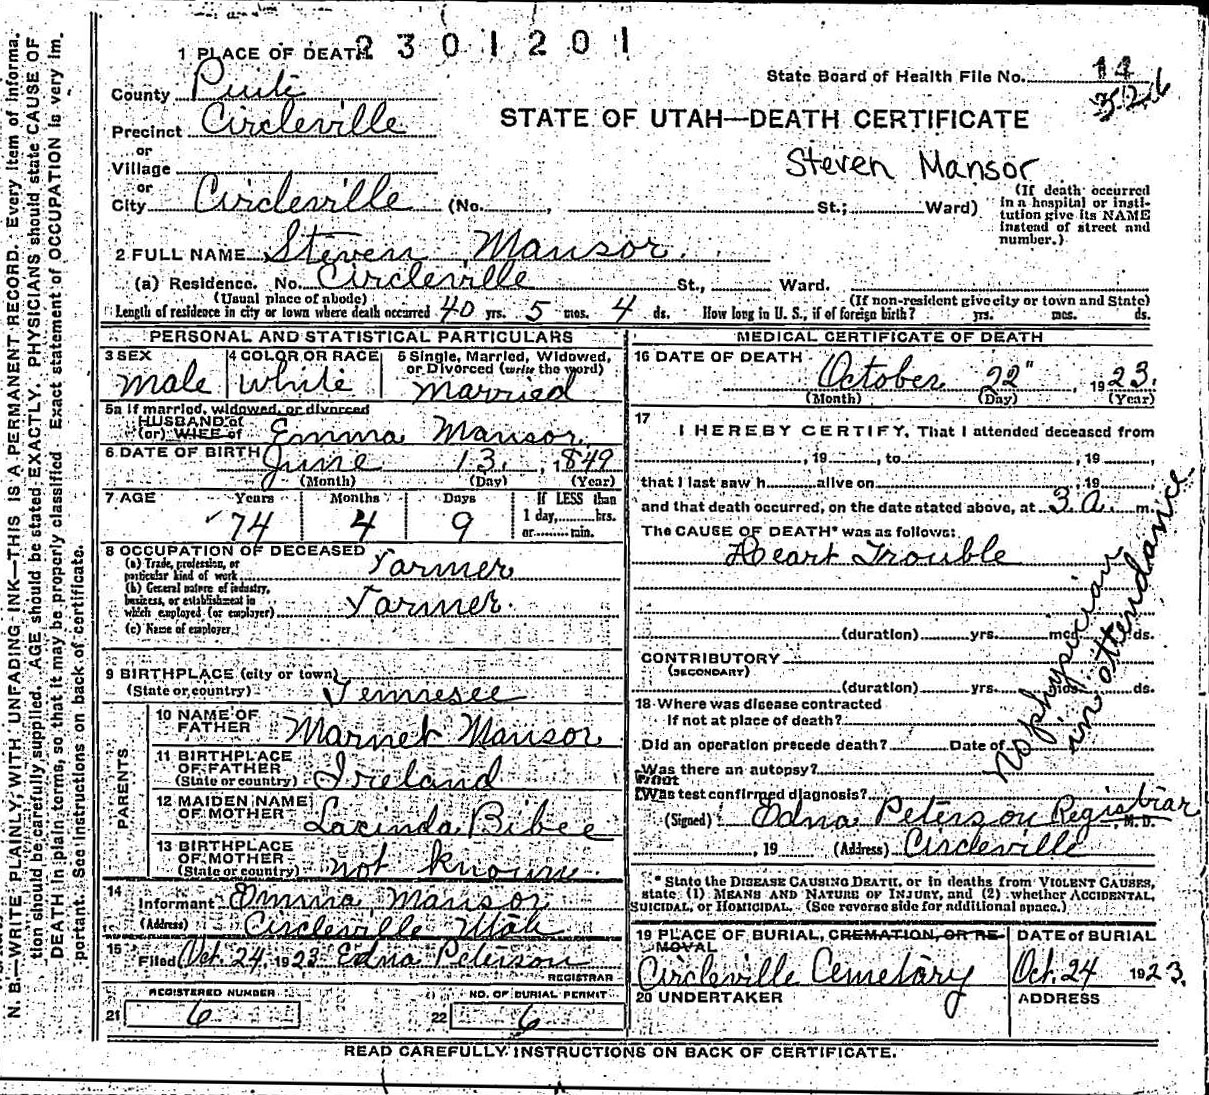 2301201
1 PLACE OF DEATH
State Board of Health File No. 14
326
County Piute
STATE OF UTAH—DEATH CERTIFICATE
Precinct Circleville
or
Village
Steven Mansor
or
City Circleville (No. , St.; Ward)
(If death occurred in a hospital or institution give its NAME instead of street and number.)
2 FULL NAME Steven Mansor
(a) Residence. No. Circleville St., Ward.
(Usual place of abode) (If non-resident give city or town and State)
Length of residence in city or town where death occurred 40 yrs. 5 mos. 4 ds. How long in U. S., if of foreign birth? yrs. mos. ds.
PERSONAL AND STATISTICAL PARTICULARS
3 SEX 4 COLOR OR RACE 5 Single, Married, Widowed, or Divorced (write the word)
Male White Married
5a If married, widowed, or divorced
HUSBAND of
(or) WIFE of Emma Mansor
6 DATE OF BIRTH June 13, 1849
(Month) (Day) (Year)
7 AGE Years Months Days If LESS than
1 day, hrs.
or min.
74 4 9
8 OCCUPATION OF DECEASED
(a) Trade, profession, or
particular kind of work Farmer
(b) General nature of industry,
business, or establishment in
which employed (or employer) Farmer
(c) Name of employer
9 BIRTHPLACE (city or town)
(State or country) Tennesee
PARENTS
10 NAME OF
FATHER Marnet Mansor
11 BIRTHPLACE
OF FATHER
(State or country) Ireland
12 MAIDEN NAME
OF MOTHER Lacinda Bibee
13 BIRTHPLACE
OF MOTHER
(State or country) not known
14
Informant Emma Mansor
(Address) Circleville Utah
15
Filed Oct. 24, 1923 Edna Peterson
REGISTRAR
REGISTERED NUMBER NO. OF BURIAL PERMIT
21 6 22 6
MEDICAL CERTIFICATE OF DEATH
16 DATE OF DEATH
October 22" , 1923.
(Month) (Day) (Year)
17
I HEREBY CERTIFY, That I attended deceased from
, 19 , to , 19 ,
that I last saw h alive on , 19 ,
and that death occurred, on the date stated above, at 3 a. m.
The CAUSE OF DEATH* was as follows:
Heart Trouble
(duration) yrs. mos. ds.
CONTRIBUTORY
(SECONDARY)
(duration) yrs. mos. ds.
no physician
in attendance
18 Where was disease contracted
if not at place of death?
Did an operation precede death? Date of
Was there an autopsy?
What
Was test confirmed diagnosis?
(Signed) Edna Peterson Registrar, M. D.
, 19 (Address) Circleville
* State the DISEASE CAUSING DEATH, or in deaths from VIOLENT CAUSES,
state (1) MEANS AND NATURE OF INJURY, and (2) whether ACCIDENTAL,
SUICIDAL, or HOMICIDAL. (See reverse side for additional space.)
19 PLACE OF BURIAL, CREMATION, OR REMOVAL DATE of BURIAL
Circleville Cemetary Oct. 24 1923.
20 UNDERTAKER ADDRESS
READ CAREFULLY INSTRUCTIONS ON BACK OF CERTIFICATE.
N. B.—WRITE PLAINLY, WITH UNFADING INK—THIS IS A PERMANENT RECORD. Every item of informa-
tion should be carefully supplied. AGE should be stated EXACTLY. PHYSICIANS should state CAUSE OF
DEATH in plain terms, so that it may be properly classified. Exact statement of OCCUPATION is very im-
portant. See instructions on back of certificate.